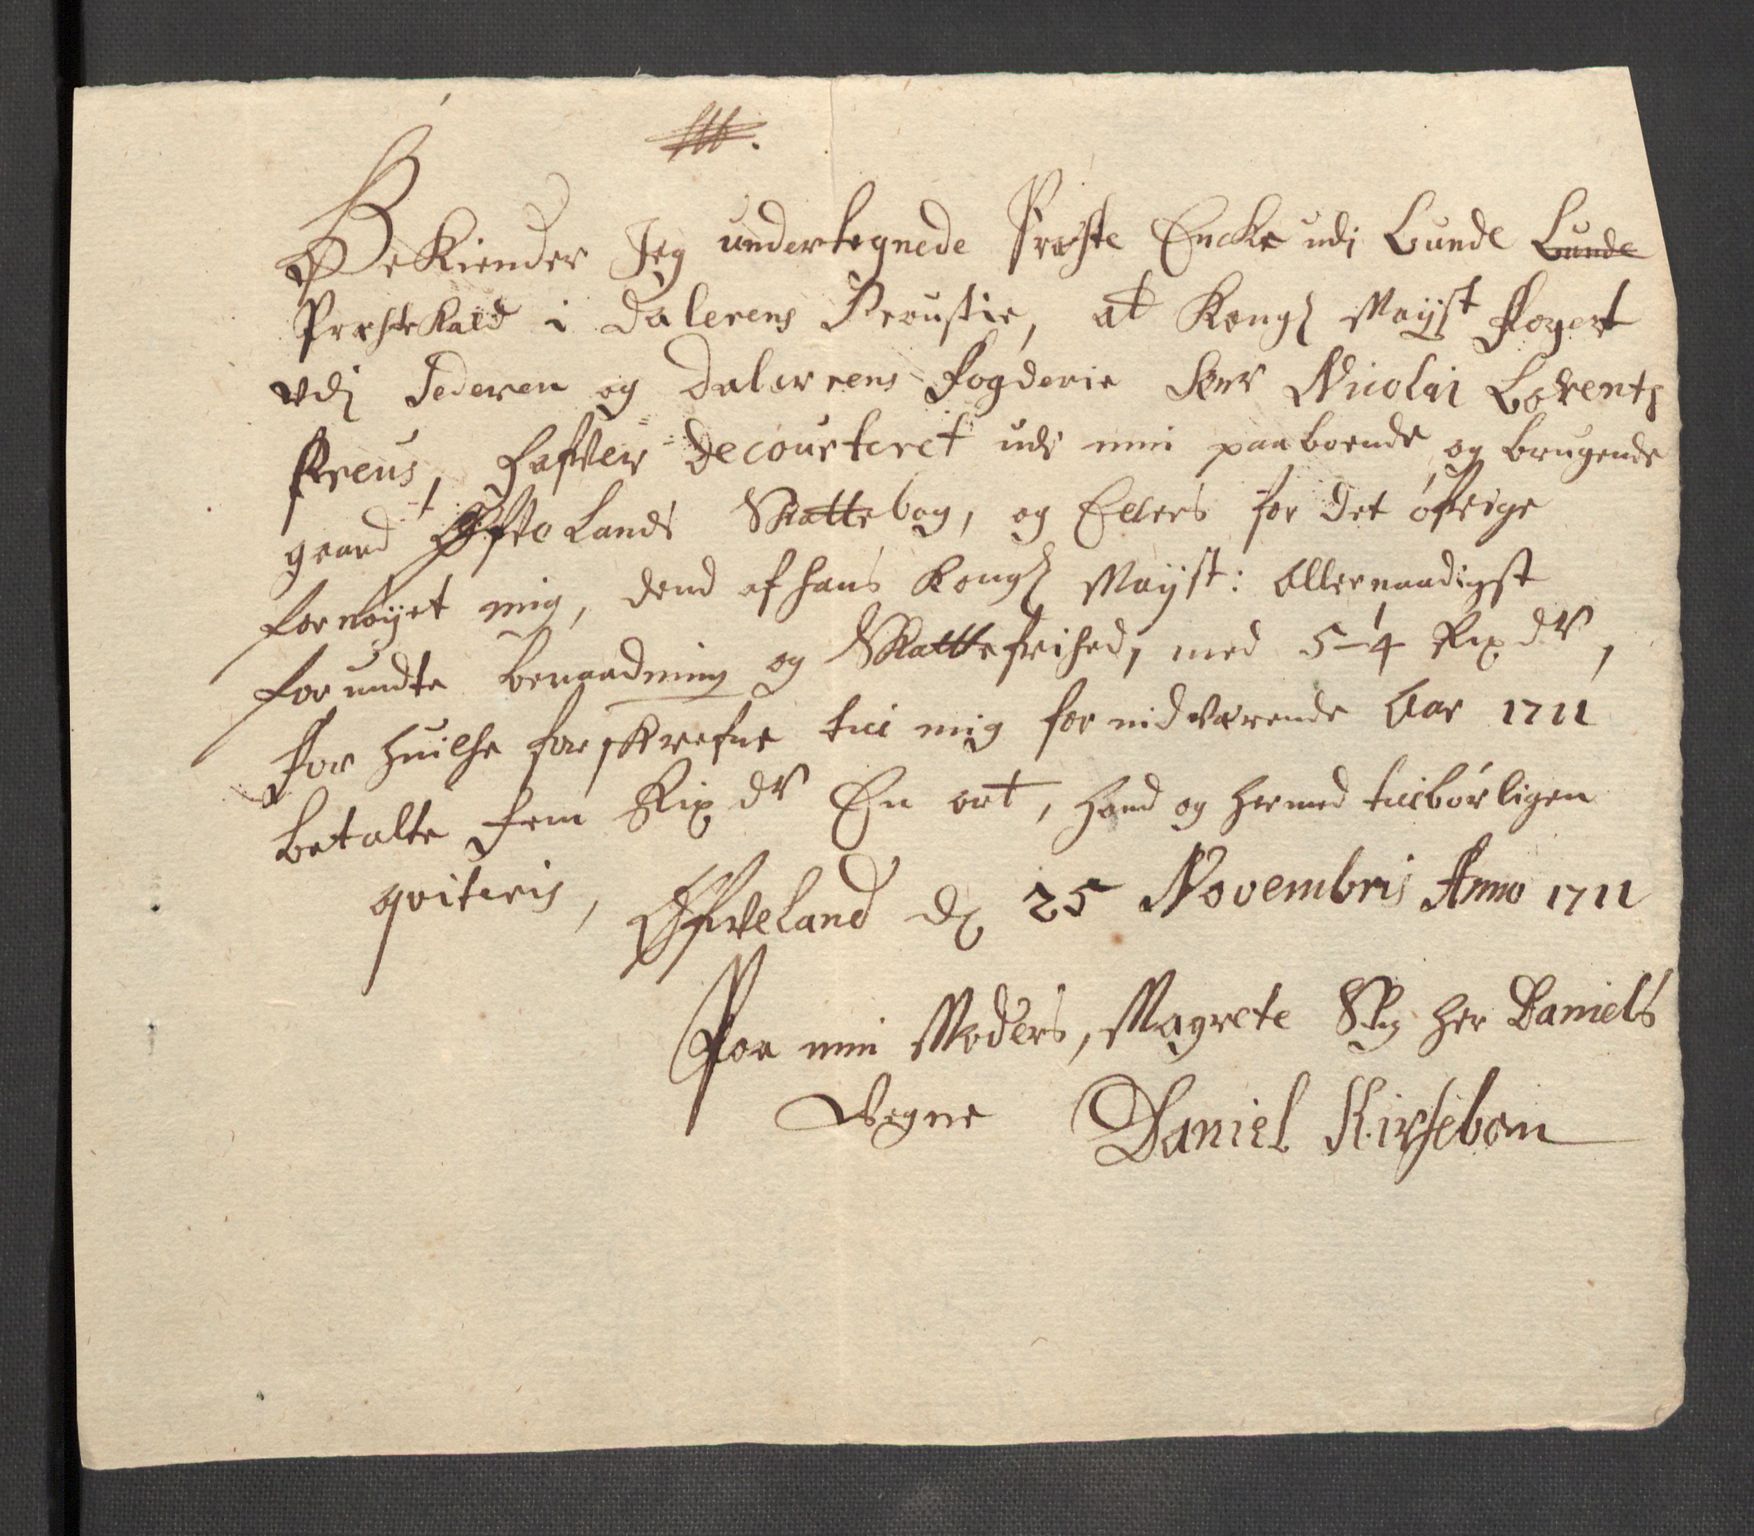 Bekiender Jeg undertegnede Præste Encke udj Lunde Lunde
Præstekald i Dalerens Proustie, at Kongl Mayst Fogert
udj Jederen og Dalerrens Fogderie Sær Nicolai Lorentz
Preus, hafver decourteret udj min paaboende og brugende
gaard Øfto Lands Skattebog, og Ellers for det øfrige
fornøyet mig, dend af hans Kongl Mayst: Allernaadigst
forundte benaadning og Skattefrihed, med 5-1/4 Rix dr,
For huilche forskrefne till mig for nidværende Aar 1711
betalte fem Rix dr En ort, hand og hermed tilbørligen
qviteris, Øfveland d 25 Novembris Anno 1711
For min Moders, Magrete Sl Her Daniels
Vegne Daniel Kirsebom